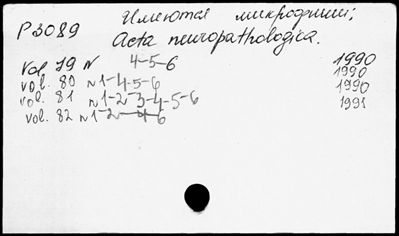 P3089
Имеются микрофиши;
Acta neuropathologica.
vol. 79 N 4-5-6 1990
vol. 80 N1-4-5-6 1990
vol. 81 N1-2-3-4-5-6 1990
vol. 82 N1-2-4-6 1991